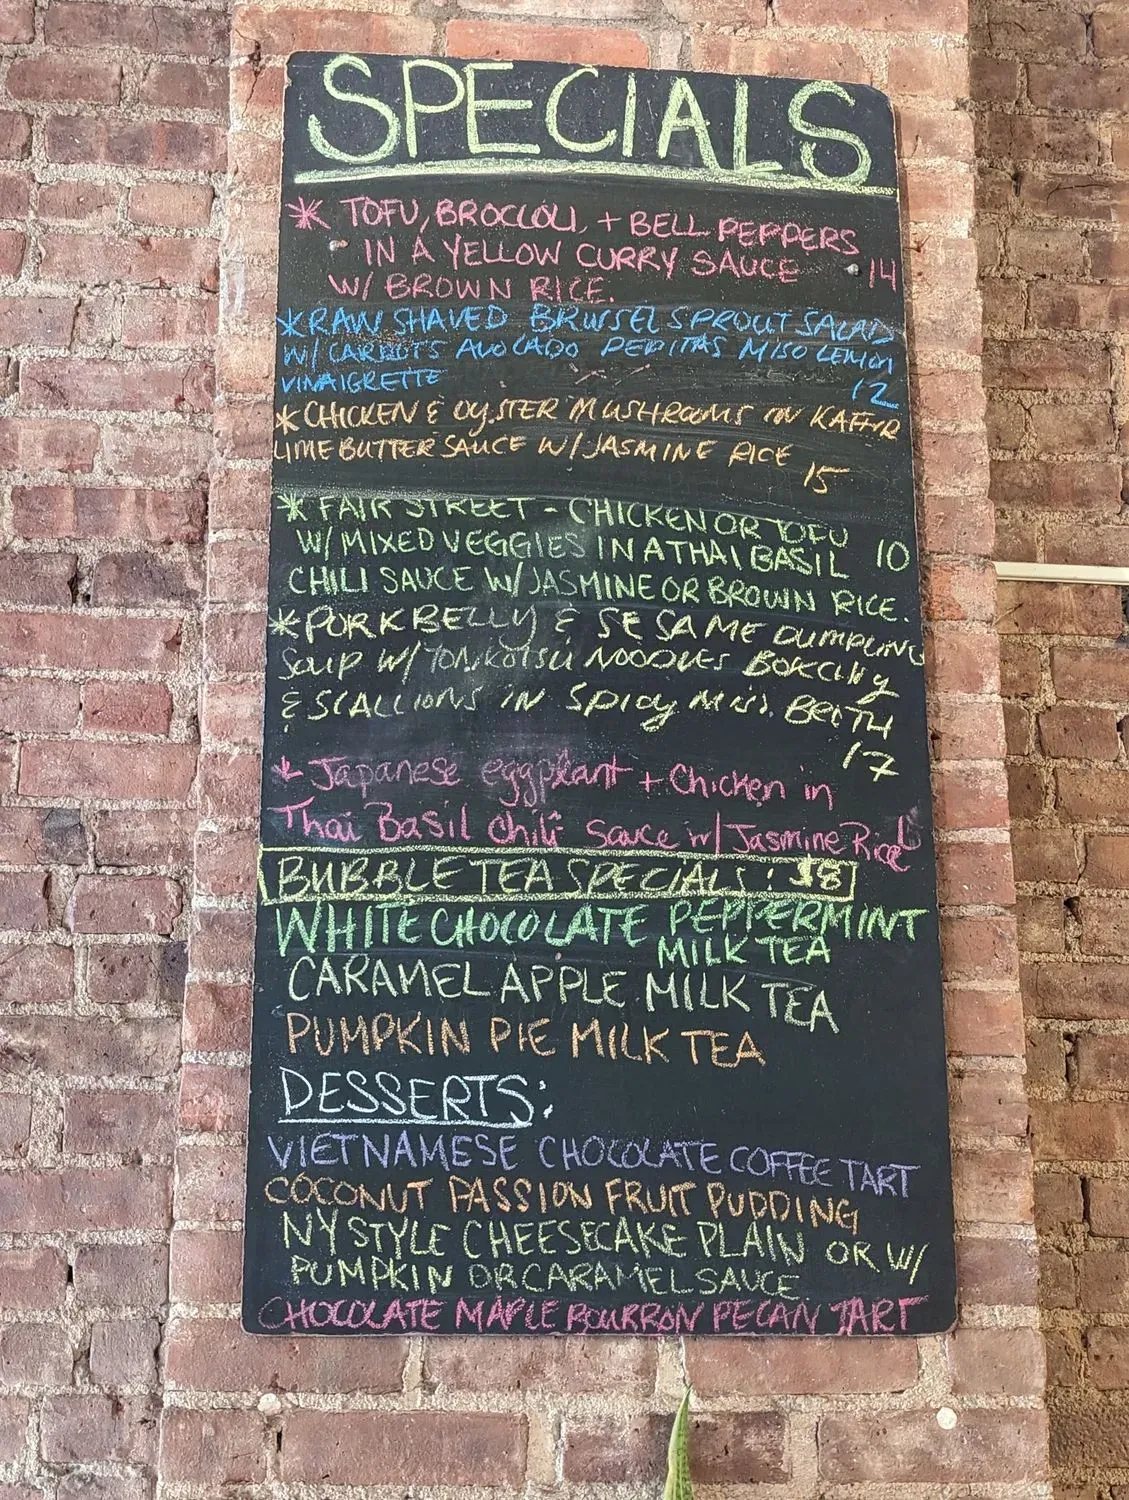 SPECIALS
* TOFU, BROCCOLI, + BELL PEPPERS
IN A YELLOW CURRY SAUCE 14
W/ BROWN RICE.
* RAW SHAVED BRUSSEL SPROUT SALAD
W/ CARROTS AVOCADO PEPITAS MISO LEMON
VINAIGRETTE 12
* CHICKEN & OYSTER MUSHROOMS IN KAFFIR
LIME BUTTER SAUCE W/ JASMINE RICE
15
* FAIR STREET - CHICKEN OR TOFU
W/ MIXED VEGGIES IN A THAI BASIL 10
CHILI SAUCE W/ JASMINE OR BROWN RICE.
* PORK BELLY & SESAME DUMPLING
SOUP W/ TONKOTSU NOODLES BOKCHY
& SCALLIONS IN SPICY MISO BROTH
17
* Japanese eggplant + Chicken in
Thai Basil Chili Sauce w/ Jasmine Rice
BUBBLE TEA SPECIALS: $8
WHITE CHOCOLATE PEPPERMINT
MILK TEA
CARAMEL APPLE MILK TEA
PUMPKIN PIE MILK TEA
DESSERTS:
VIETNAMESE CHOCOLATE COFFEE TART
COCONUT PASSION FRUIT PUDDING
NY STYLE CHEESECAKE PLAIN OR W/
PUMPKIN OR CARAMEL SAUCE
CHOCOLATE MAPLE BOURRON PECAN TART